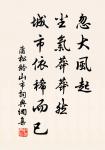 忽大風起
塵氣莽莽然
城市依稀而已
蒲松齡山市詞典網集